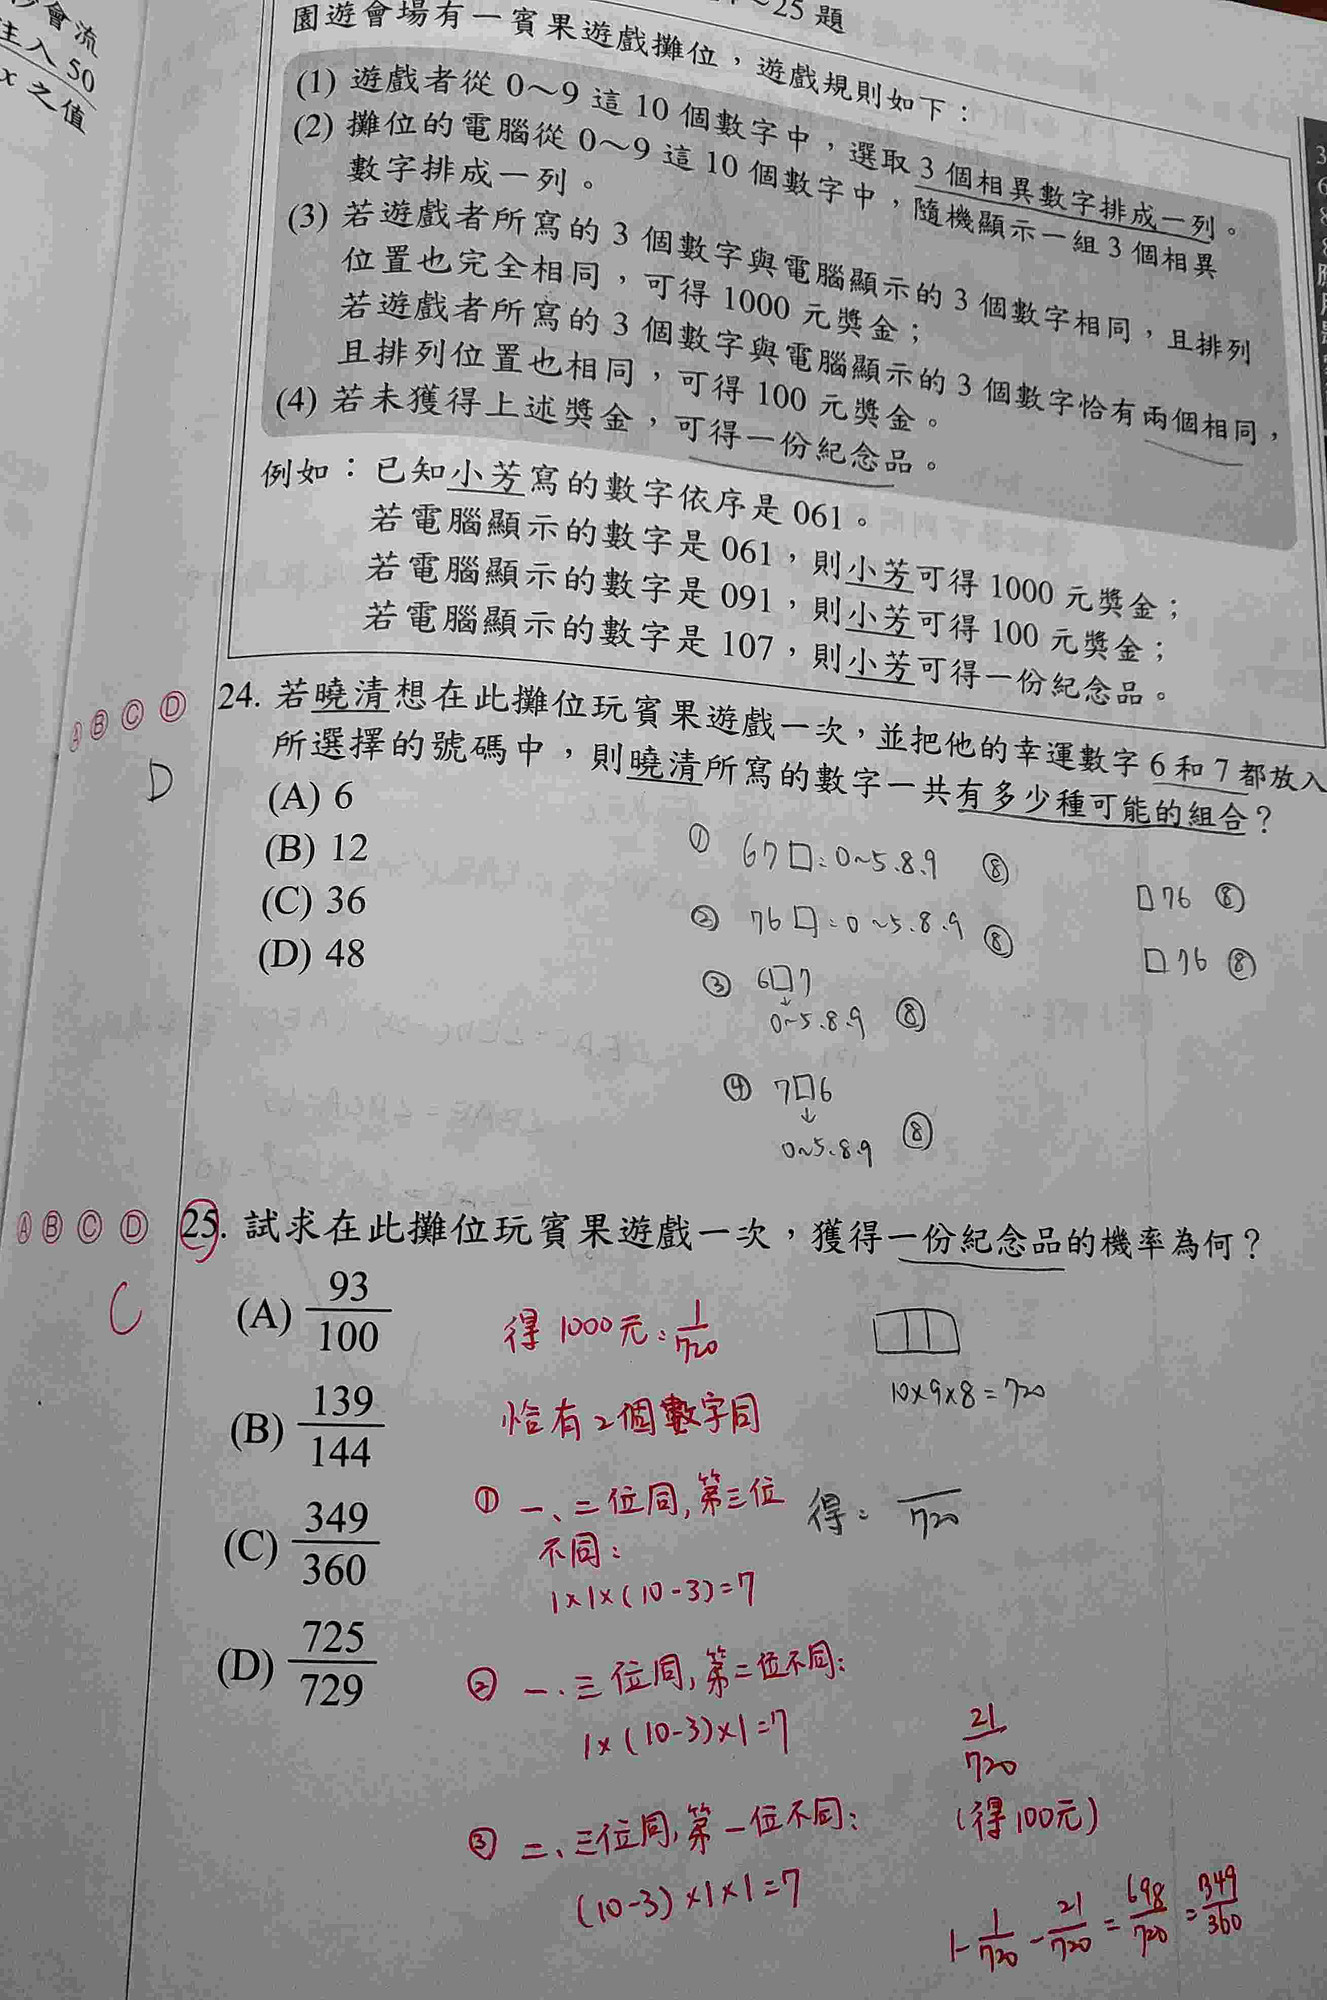 沙會流
注入 50
x 之值
~25 題
園遊會場有一賓果遊戲攤位,遊戲規則如下:
(1) 遊戲者從 0~9 這 10 個數字中,選取 3 個相異數字排成一列。
(2) 攤位的電腦從 0~9 這 10 個數字中,隨機顯示一組 3 個相異
數字排成一列。
(3) 若遊戲者所寫的 3 個數字與電腦顯示的 3 個數字相同,且排列
位置也完全相同,可得 1000 元獎金;
若遊戲者所寫的 3 個數字與電腦顯示的 3 個數字恰有兩個相同,
且排列位置也相同,可得 100 元獎金。
(4) 若未獲得上述獎金,可得一份紀念品。
例如:已知小芳寫的數字依序是 061。
若電腦顯示的數字是 061,則小芳可得 1000 元獎金;
若電腦顯示的數字是 091,則小芳可得 100 元獎金;
若電腦顯示的數字是 107,則小芳可得一份紀念品。
Ⓐ Ⓑ Ⓒ Ⓓ 24. 若曉清想在此攤位玩賓果遊戲一次,並把他的幸運數字 6 和 7 都放入
D
所選擇的號碼中,則曉清所寫的數字一共有多少種可能的組合?
(A) 6
(B) 12
(C) 36
(D) 48
① 67□:0~5.8.9 ⑧
② 76□:0~5.8.9 ⑧
③ 6□7
↓
0~5.8.9 ⑧
④ 7□6
↓
0~5.8.9 ⑧
□76 ⑧
□76 ⑧
Ⓐ Ⓑ Ⓒ Ⓓ 25. 試求在此攤位玩賓果遊戲一次,獲得一份紀念品的機率為何?
C
(A) 93/100
(B) 139/144
(C) 349/360
(D) 725/729
得 1000 元:1/720
10×9×8=720
恰有2個數字同
① 一、二位同,第三位
不同:
1×1×(10-3)=7
得: /720
② 一.三位同,第二位不同:
1×(10-3)×1=7
21/720
(得100元)
③ 二、三位同,第一位不同:
(10-3)×1×1=7
1-1/720-21/720=698/720=349/360